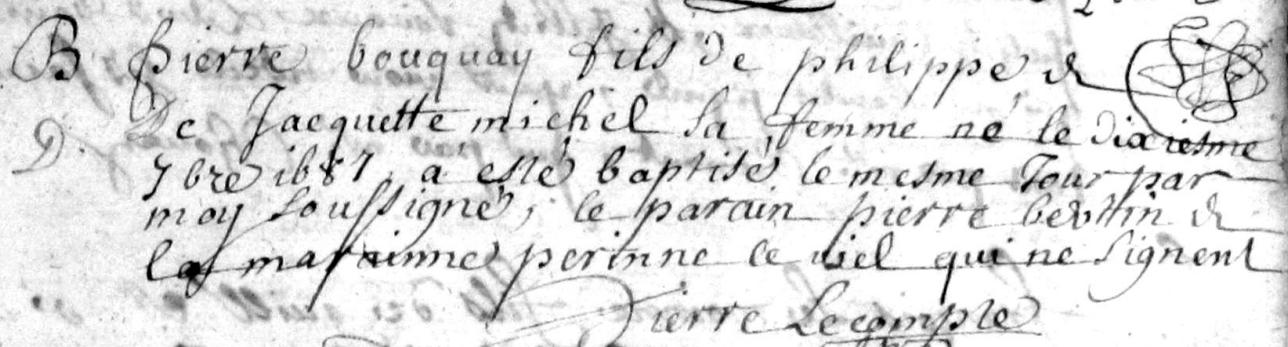 B pierre bouquay fils de philippe &
D. De Jacquette michel sa femme né le dixiesme
7bre 1687, a esté baptisé le mesme Jour par
moy soussigné, le parain pierre &
la marainne perinne le viel qui ne signent
Pierre Lecompte